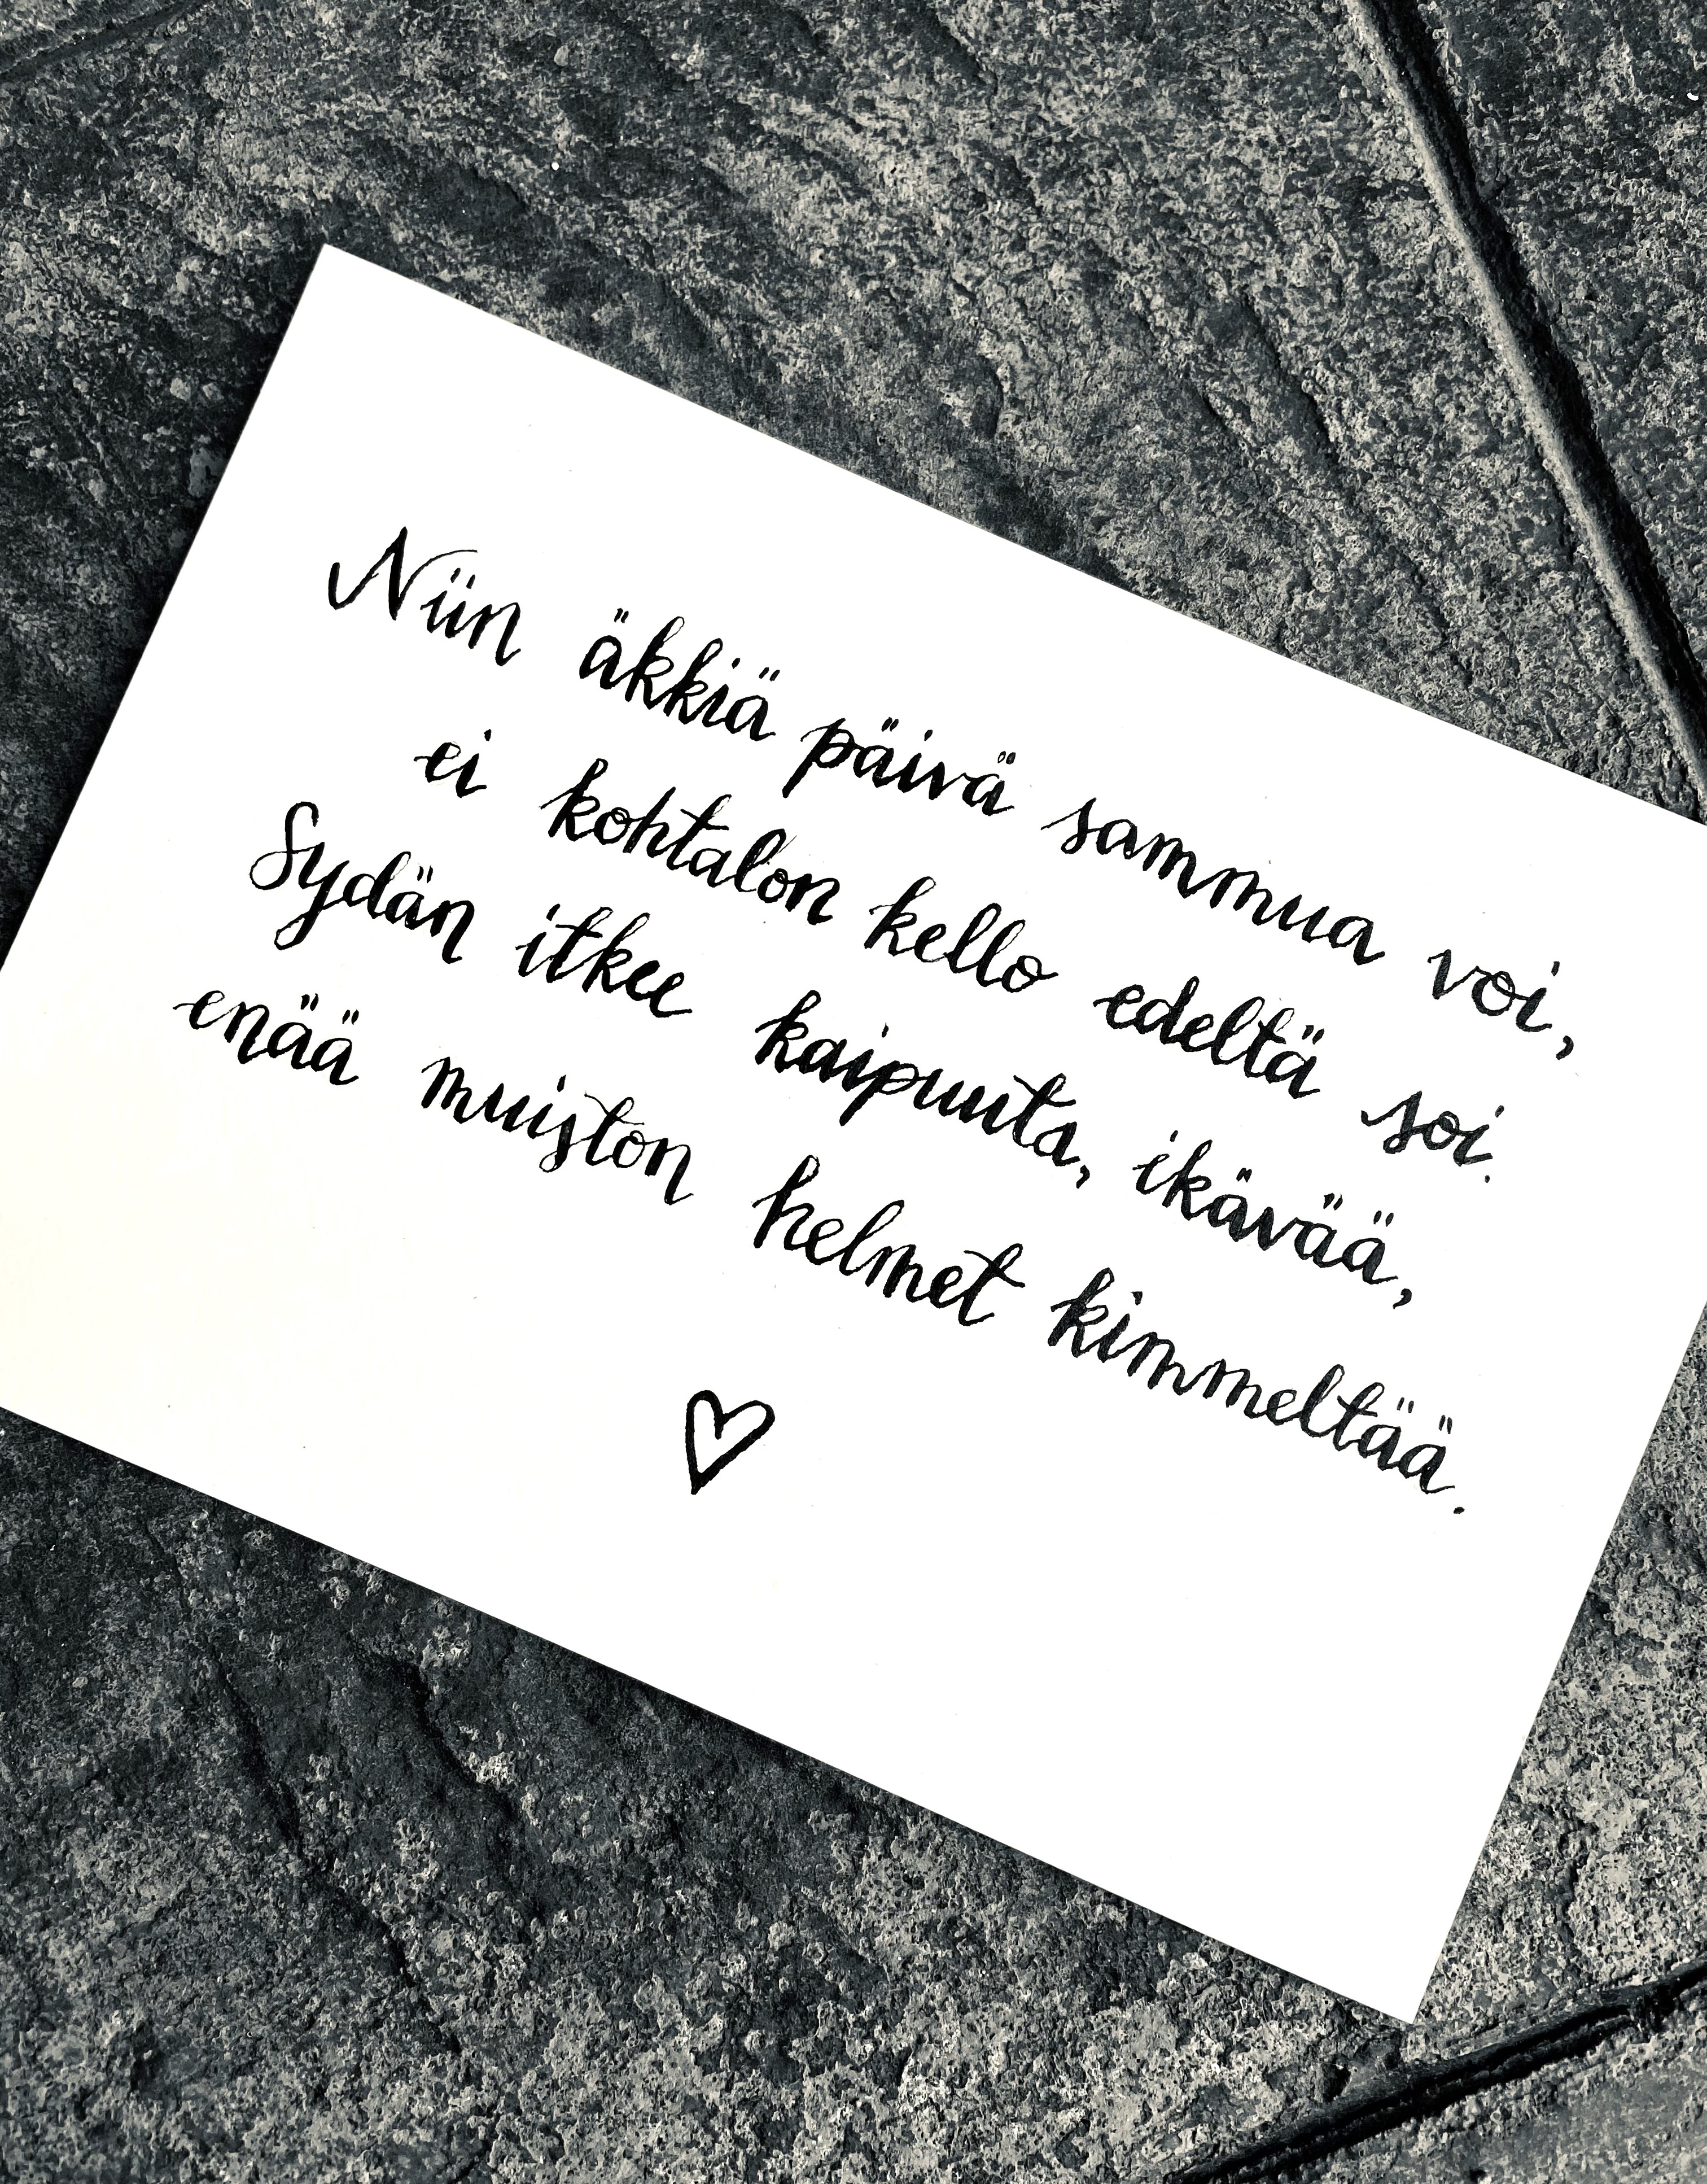 Niin äkkiä päivä sammua voi,
ei kohtalon kello edeltä soi.
Sydän itkee kaipuuta, ikävää,
enää muiston helmet kimmeltää.